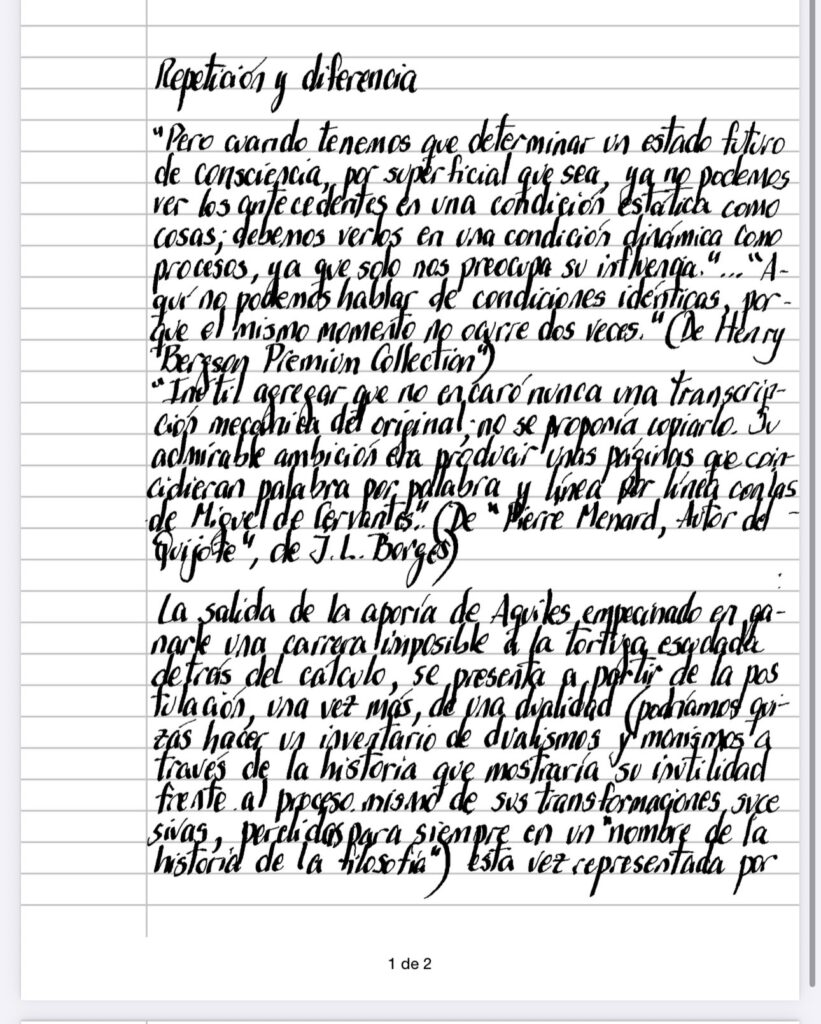 Repetición y diferencia
"Pero cuando tenemos que determinar un estado futuro
de consciencia, por superficial que sea, ya no podemos
ver los antecedentes en una condición estática como
cosas; debemos verlos en una condición dinámica como
procesos, ya que solo nos preocupa su influencia."..."A-
quí no podemos hablar de condiciones idénticas, por-
que el mismo momento no ocurre dos veces." (De Henry
"Bergson Premiun Collection")
"Inútil agregar que no encaró nunca una transcrip-
ción mecánica del original; no se proponía copiarlo. Su
admirable ambición era producir unas páginas que coin
cidieran palabra por palabra y línea por línea con las
de Miguel de Cervantes". (De "Pierre Menard, Autor del
Quijote", de J.L. Borges)
La salida de la aporía de Aquiles empecinado en ga-
narle una carrera imposible a la tortuga escudada
detrás del cálculo, se presenta a partir de la pos
tulación, una vez más, de una dualidad (podríamos qui-
zás hacer un inventario de dualismos y monismos a
través de la historia que mostraría su inutilidad
frente al proceso mismo de sus transformaciones suce
sivas, perdidas para siempre en un "nombre de la
historia de la filosofía") esta vez representada por
1 de 2